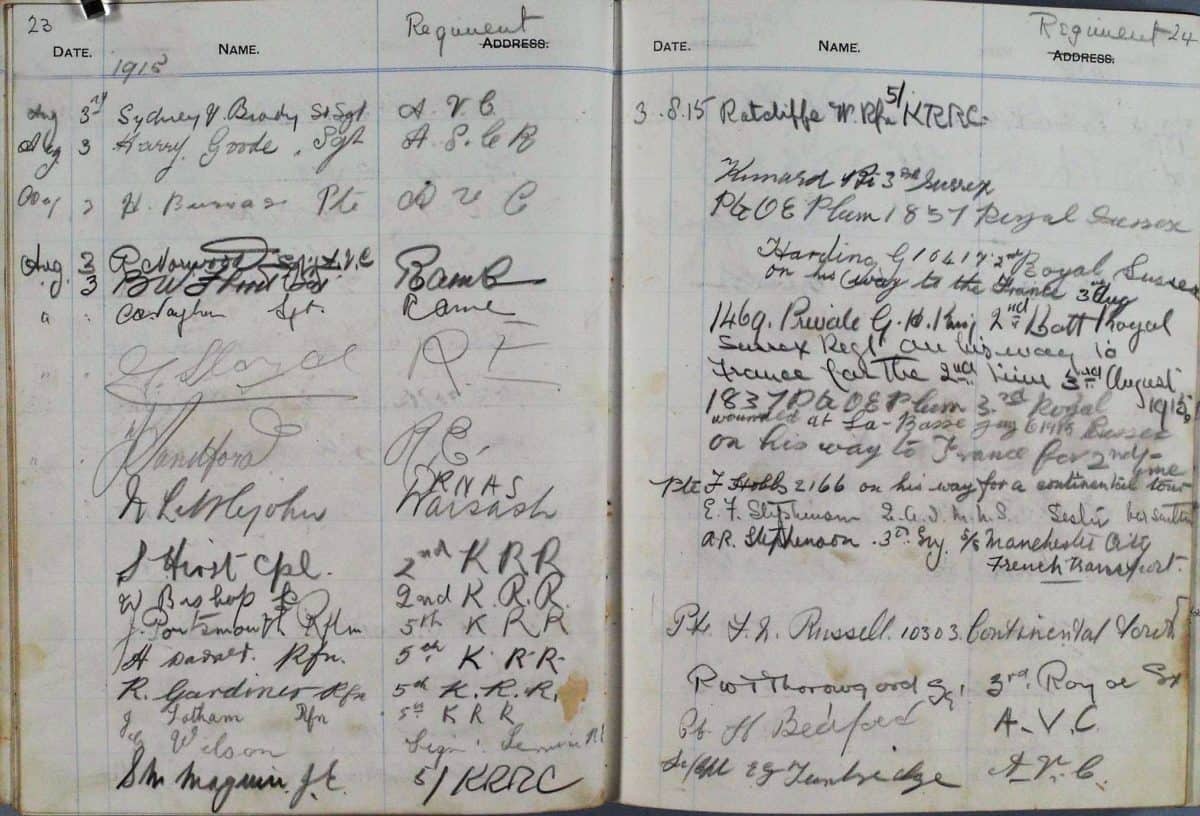 23
Regiment
DATE. NAME. ADDRESS.
1915
Aug 3rd Sydney V. Brady St Sgt A. V. C.
Aug 3 Harry Goode, Sgt A. S. C
Aug 3 H. Pte A V C
Aug. 3 P. Norwood A.V.C
Aug. 3 RAMC
" " Sgt. Same
" " G. Lloyd R. E
" " Sandford R. E.
RNAS
Littlejohn Warsash
S Hirst Cpl. 2nd K R R
W Bishop 2nd K. R. R.
J. Portsmouth Rflm 5th K R R
H Rfn. 5th K. R R.
R. Gardiner Rfn 5th K. R. R.
J Totham Rfn 5th K R R
Wilson
S M Maguire 5/ KRRC
Regiment 24
DATE. NAME. ADDRESS.
3.8.15 Ratcliffe W. Rfn 5/ KRRC.
3rd Sussex
Pte O E Plum 1837 Royal Sussex
Harding G 10417 2nd Royal Sussex
on his way to the France 3rd Aug
1469. Private G. H. King 2nd Batt Royal
Sussex Regt on his way to
France for the 2nd time 3rd August
1915
1837 Pte O E Plum 3rd Royal
wounded at La-Basse Sussex
on his way to France for 2nd
time
Pte F Hobbs 2166 on his way for a continental tour
E. F. Stephenson
A.R. Stephenson. S/S Manchester City
French Transport.
Pte. Russell. 10303. Continental
Thorowgood 3rd. Royal Sx
Pte H Bedford A. V. C.
Tunbridge A. V. C.